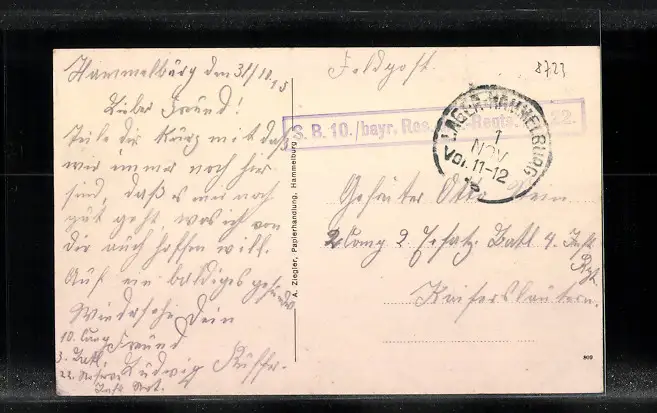 Hammelburg den 31/10.15
Lieber Freund!
Teile dir kurz mit daß
wir immer noch hier
sind, daß es mir noch
gut geht was ich von
dir auch hoffen will.
Auf ein baldiges gesundes
Wiedersehn Dein
Freund
Ludwig
10. Comp
3. Batl.
22. Reserve
Inft Regt.
A. Ziegler, Papierhandlung, Hammelburg
Feldpost.
8723
S. B. 10./bayr. Res. Regts. 22.
LAGER HAMMELBURG
1
NOV
Vor. 11-12
15
Gefreiter Otto
2 Comp 2 Ersatz Batl 4. Inft
Rgt.
Kaiserslautern.
809